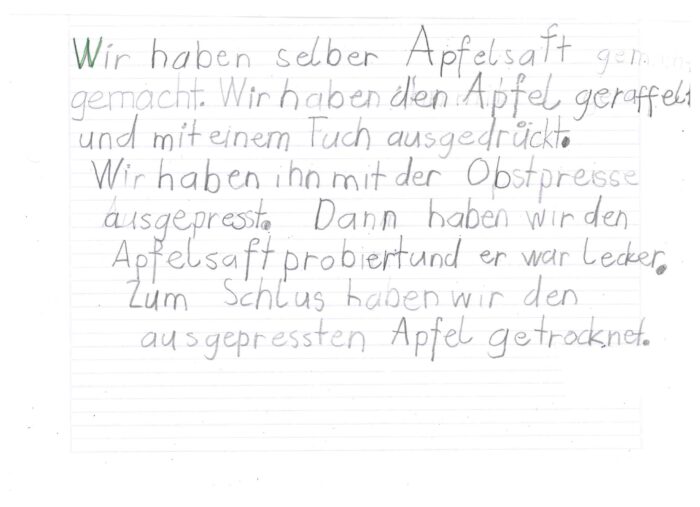 Wir haben selber Apfelsaft
gemacht. Wir haben den Apfel geraffelt
und mit einem Tuch ausgedrückt.
Wir haben ihn mit der Obstpreisse
ausgepresst. Dann haben wir den
Apfelsaft probiert und er war Lecker.
Zum Schlus haben wir den
ausgepressten Apfel getrocknet.